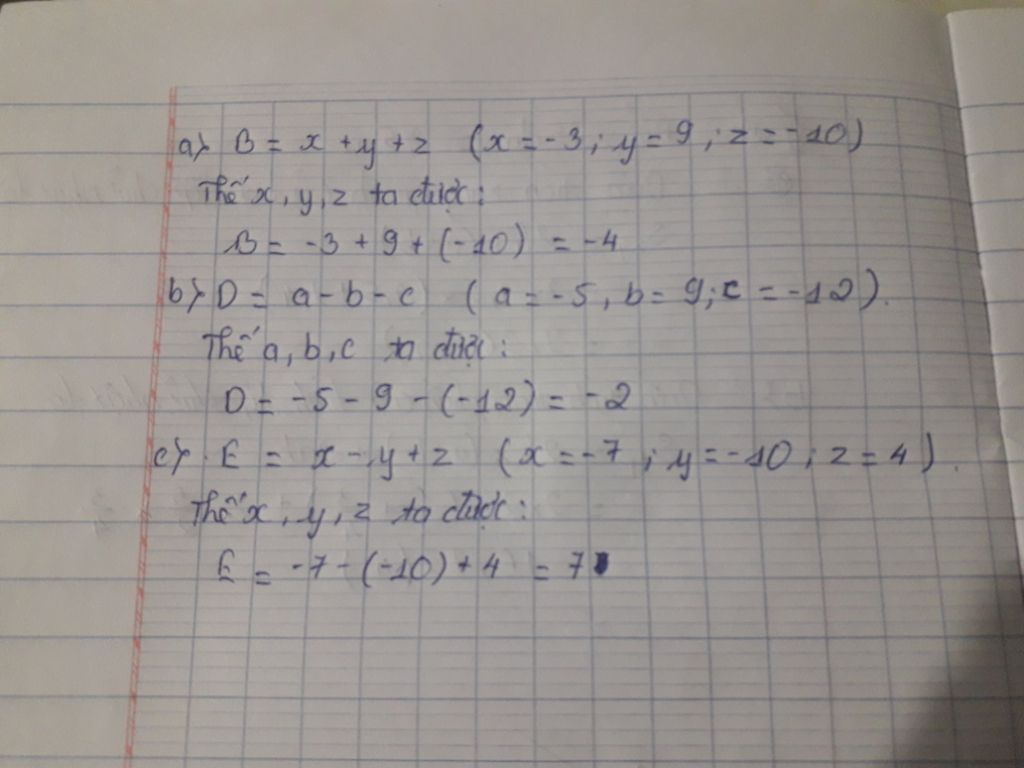 a) B = x + y + z (x = -3 ; y = 9 ; z = -10)
Thế x, y, z ta được :
B = -3 + 9 + (-10) = -4
b) D = a - b - c ( a = -5 , b = 9 ; c = -12 ).
Thế a, b, c ta được :
D = -5 - 9 - (-12) = -2
c) E = x - y + z (x = -7 ; y = -10 ; z = 4 ).
Thế x, y, z ta được :
E = -7 - (-10) + 4 = 7